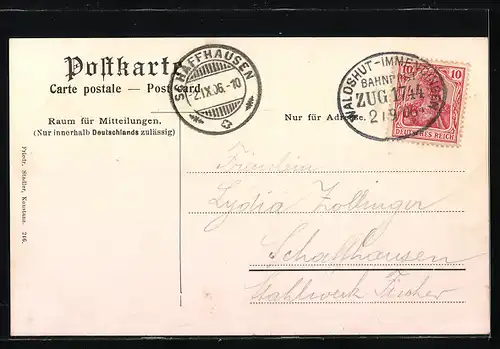 Postkarte
Carte postale — Post card
Raum für Mitteilungen.
(Nur innerhalb Deutschlands zulässig)
Nur für Adresse.
SCHAFFHAUSEN
-2.IX.06.-10
WALDSHUT-IMMENDINGEN
BAHNPOST
ZUG 1744
2/9 06
10
10
DEUTSCHES REICH
Fräulein
Lydia Zollinger
Schaffhausen
Stahlwerk Fischer
Friedr. Stadler, Konstanz. 246.